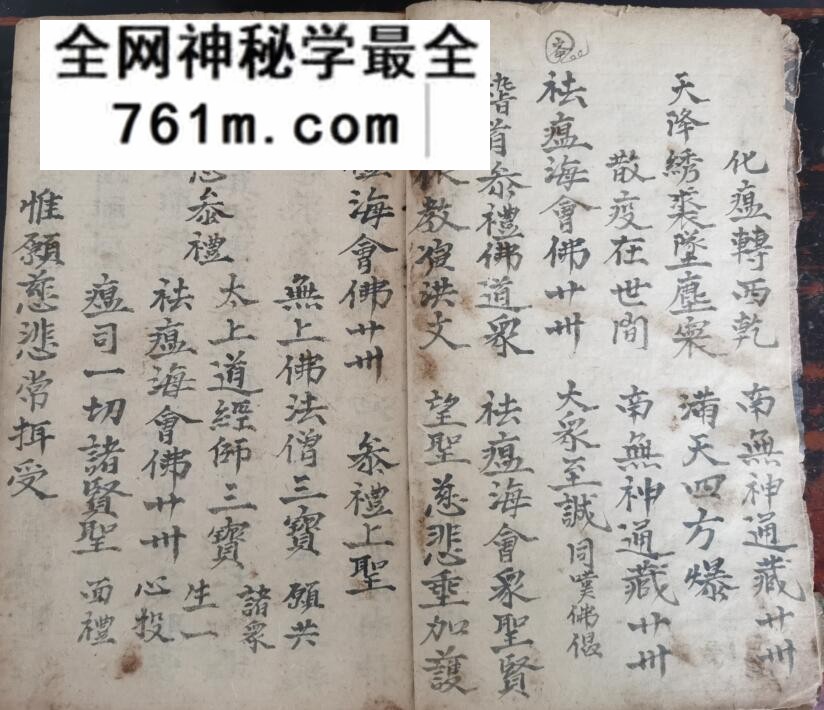 全网神秘学最全
761m.com
化瘟轉西乾 南無神通藏卄卌
天降綉裘墜塵寰 滿天四方爆
散疫在世間 南無神通藏卄卌
祛瘟海會佛卄卌 大眾至誠 同嘆佛偈
首叅禮佛道眾 祛瘟海會眾聖賢
教演洪文 望聖慈悲垂加護
海會佛卄卌 叅禮上聖
無上佛法僧三寶 願共
叅禮 太上道經師三寶 諸眾
祛瘟海會佛卄卌 生一
心投
瘟司一切諸賢聖 面禮
惟願慈悲常拑受